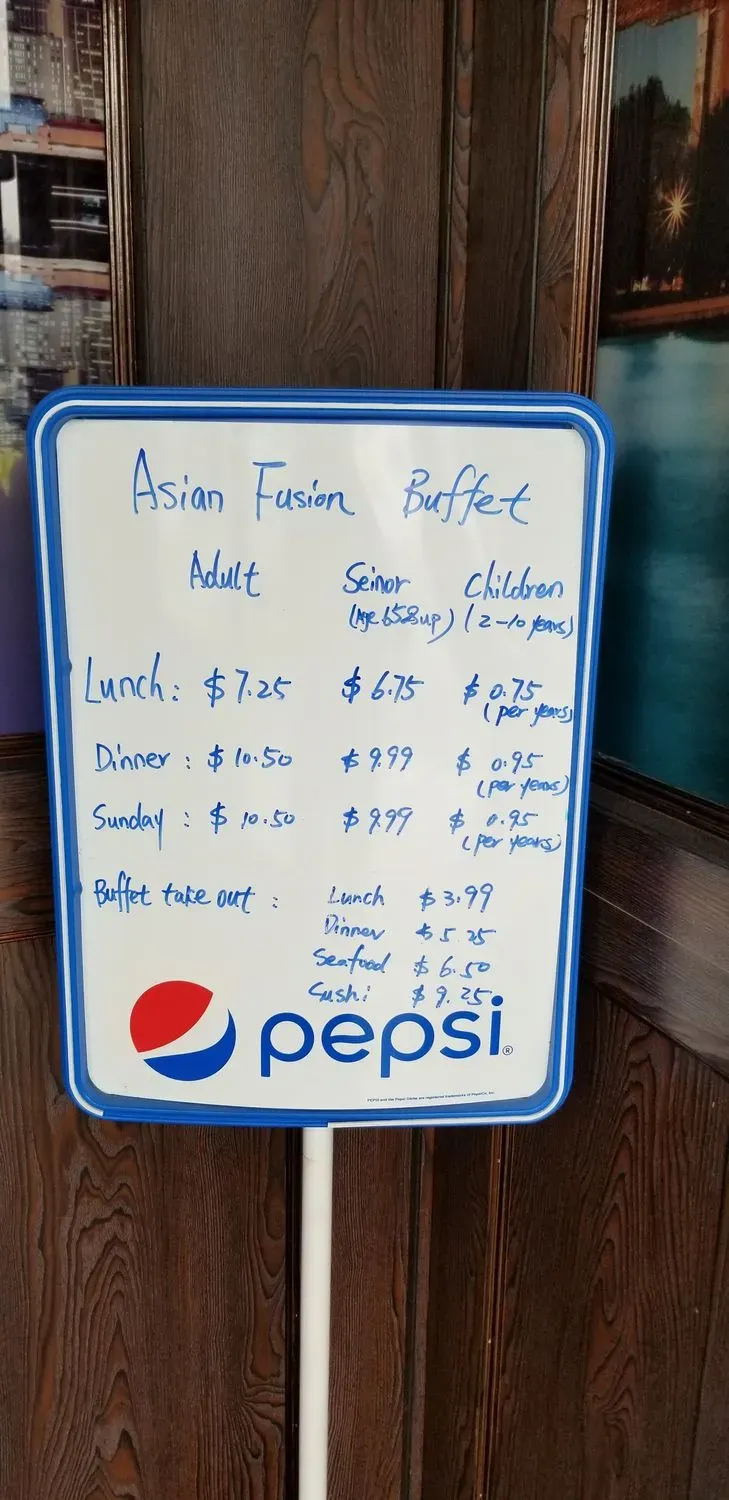 Asian Fusion Buffet
Adult Seinor Children
(Age 65&up) (2-10 years)
Lunch: $7.25 $6.75 $0.75
(per years)
Dinner: $10.50 $9.99 $0.95
(per years)
Sunday: $10.50 $9.99 $0.95
(per years)
Buffet take out: Lunch $3.99
Dinner $5.25
Seafood $6.50
Sushi $9.25
pepsi®
PEPSI and the Pepsi Globe are registered trademarks of PepsiCo, Inc.